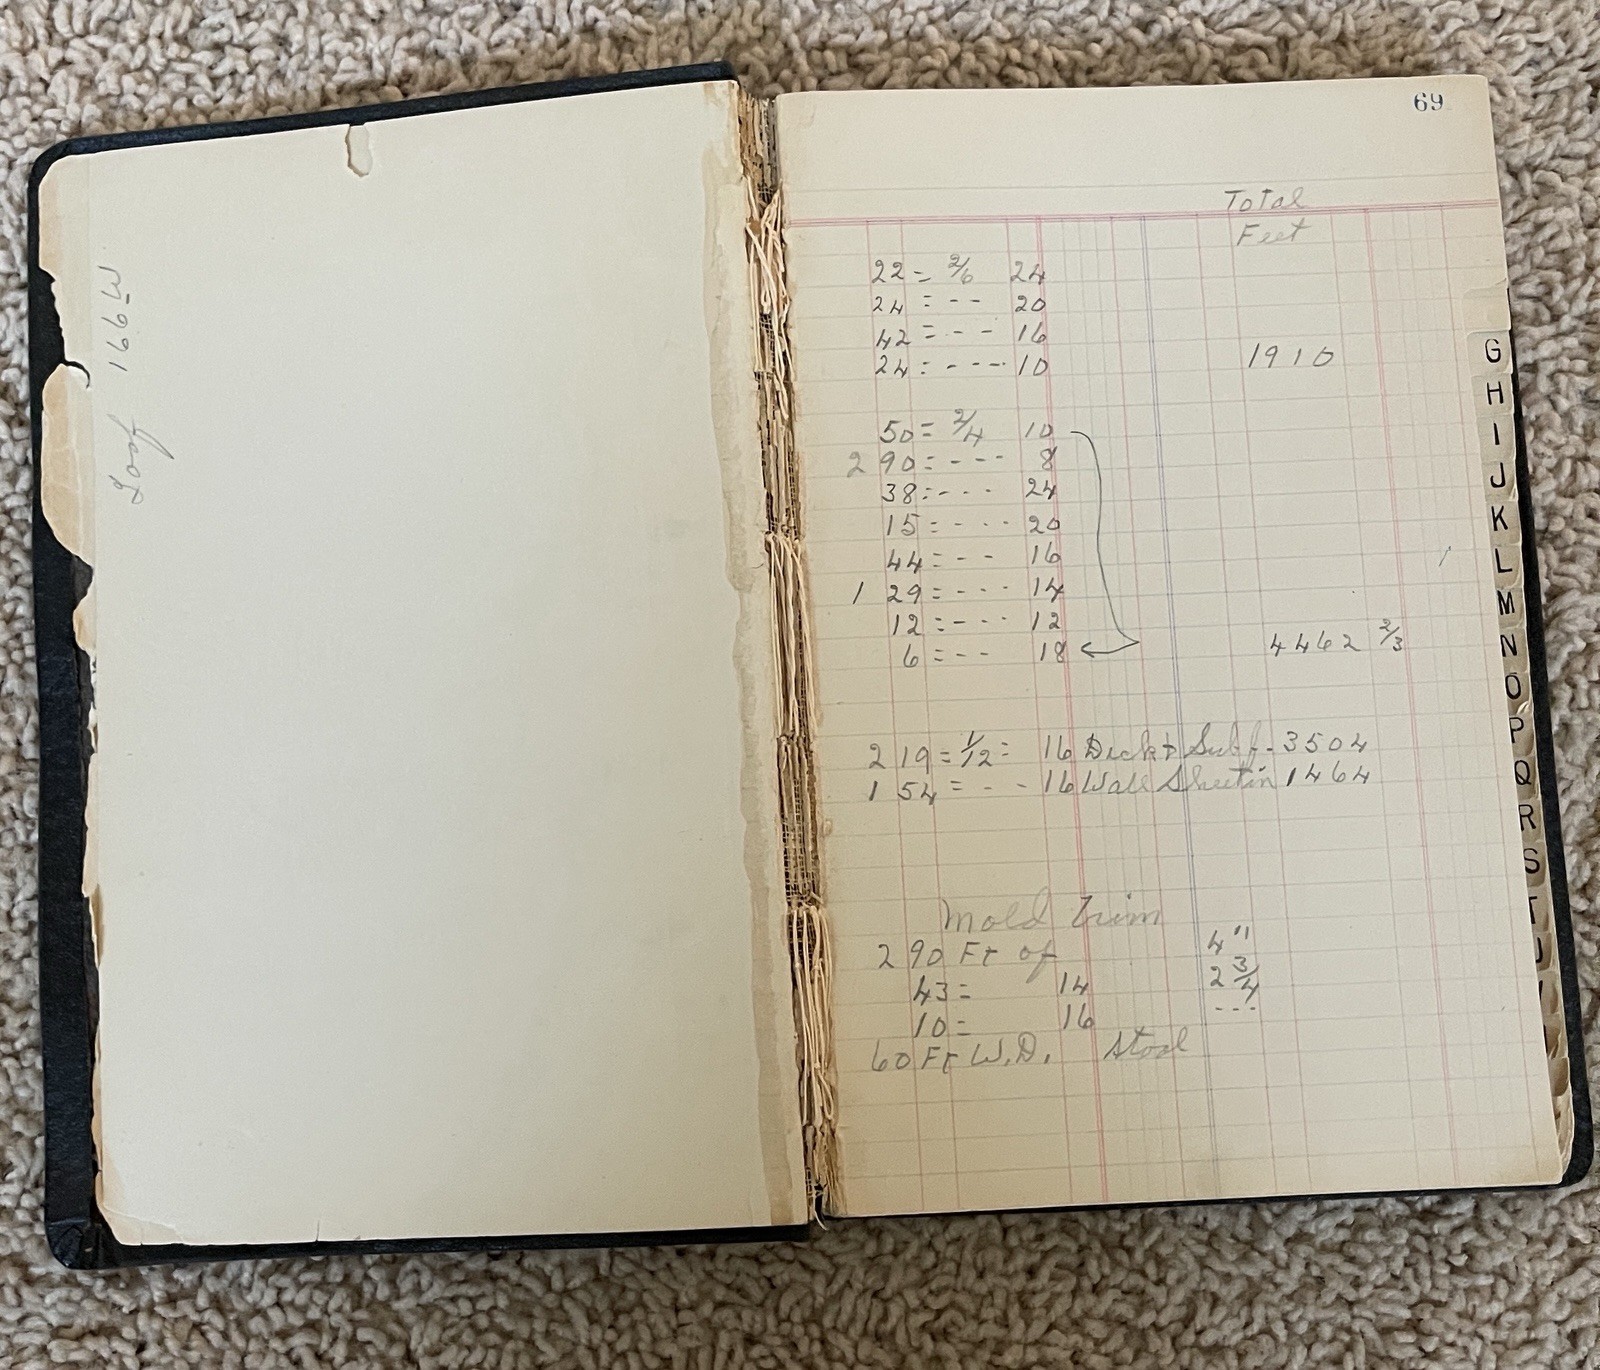 Loof 166W
69
Total
Feet
22 = 2/6 24
24 = -- 20
42 = --- 16
24 = ---- 10 1910
50 = 2/4 10
2 90 = ---- 8
38 = --- 24
15 = ---- 20
44 = --- 16
1 29 = --- 14
12 = ---- 12
6 = -- 18 4462 2/3
2 19 = 1/12 = 16 Deck & Subf - 3504
1 54 = -- 16 Wall Sheetin 1464
Mold Trim
2 90 Ft of 4"
43 = 14 2 3/4
10 = 16 ---
60 Ft W.D. Stool
G
H
I
J
K
L
M
N
O
P
Q
R
S
T